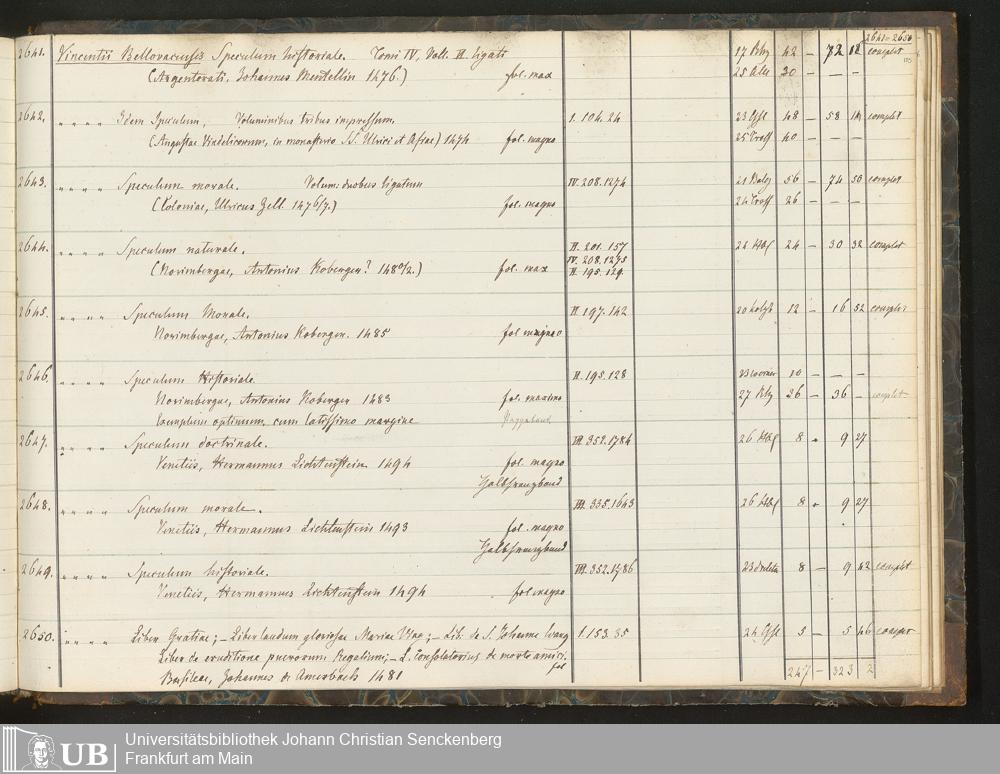 2641–2650
2641. Vincentii Bellovacensis Speculum historiale. Tomi IV, Voll. II ligati 17 Rhz 42 – 72 12 complet
(Argentorati, Johannes Mentellin 1476.) fol. max 25 30 – –
2642. " " " " Idem Speculum, Voluminibus tribus impressum. I. 104. 24 23 48 – 58 complet
(Augustae Vindelicorum, in monasterio SS. Ulrici et Afrae) 1474 fol. magno 25 40 – – –
2643. " " " " Speculum morale. Volum: duobus ligatum IV. 208. 1274 21 56 – 74 50 complet
(Coloniae, Ulricus Zell. 1476/7.) fol. magno 24 26 – – –
2644. " " " " Speculum naturale. II. 201. 157 24 – 30 32 complet
IV. 208. 1275
(Norimbergae, Antonius Koberger? 148 /2.) fol. max II. 195. 129.
2645. " " " " Speculum Morale. II. 197. 142 20 12 – 16 52 complet
Norimbergae, Antonius Koberger. 1485 fol magno
2646. " " " " Speculum Historiale. II. 195. 128 10 – – –
Norimbergae, Antonius Koberger 1483 fol. maximo 27 Rhz 26 – 36 – complet
Exemplum optimum, cum latissimo margine Pappband
2647. " " " " Speculum doctrinale. III. 352. 1784 26 8 " 9 27
Venetiis, Hermannus Lichtenstein 1494 fol. magno
Halbfranzband
2648. " " " " Speculum morale. III. 335. 1643 26 8 " 9 27
Venetiis, Hermannus Lichtenstein 1493 fol. magno
Halbfranzband
2649. " " " " Speculum historiale. III. 352. 1786 23 8 – 9 42 complet
Venetiis, Hermannus Lichtenstein 1494 fol magno
2650. " " " " Liber Gratiae; – Liber laudum gloriosae Mariae Virg; – Lib. de S. Johanne Evang I. 153. 35 24 5 – 5 46 complet
Liber de eruditione puerorum Regalium; – L. Consolatorius de morte amici.
fol
Basileae, Johannes de Amerbach 1481 247 – 323 2
UB
Universitätsbibliothek Johann Christian Senckenberg
Frankfurt am Main